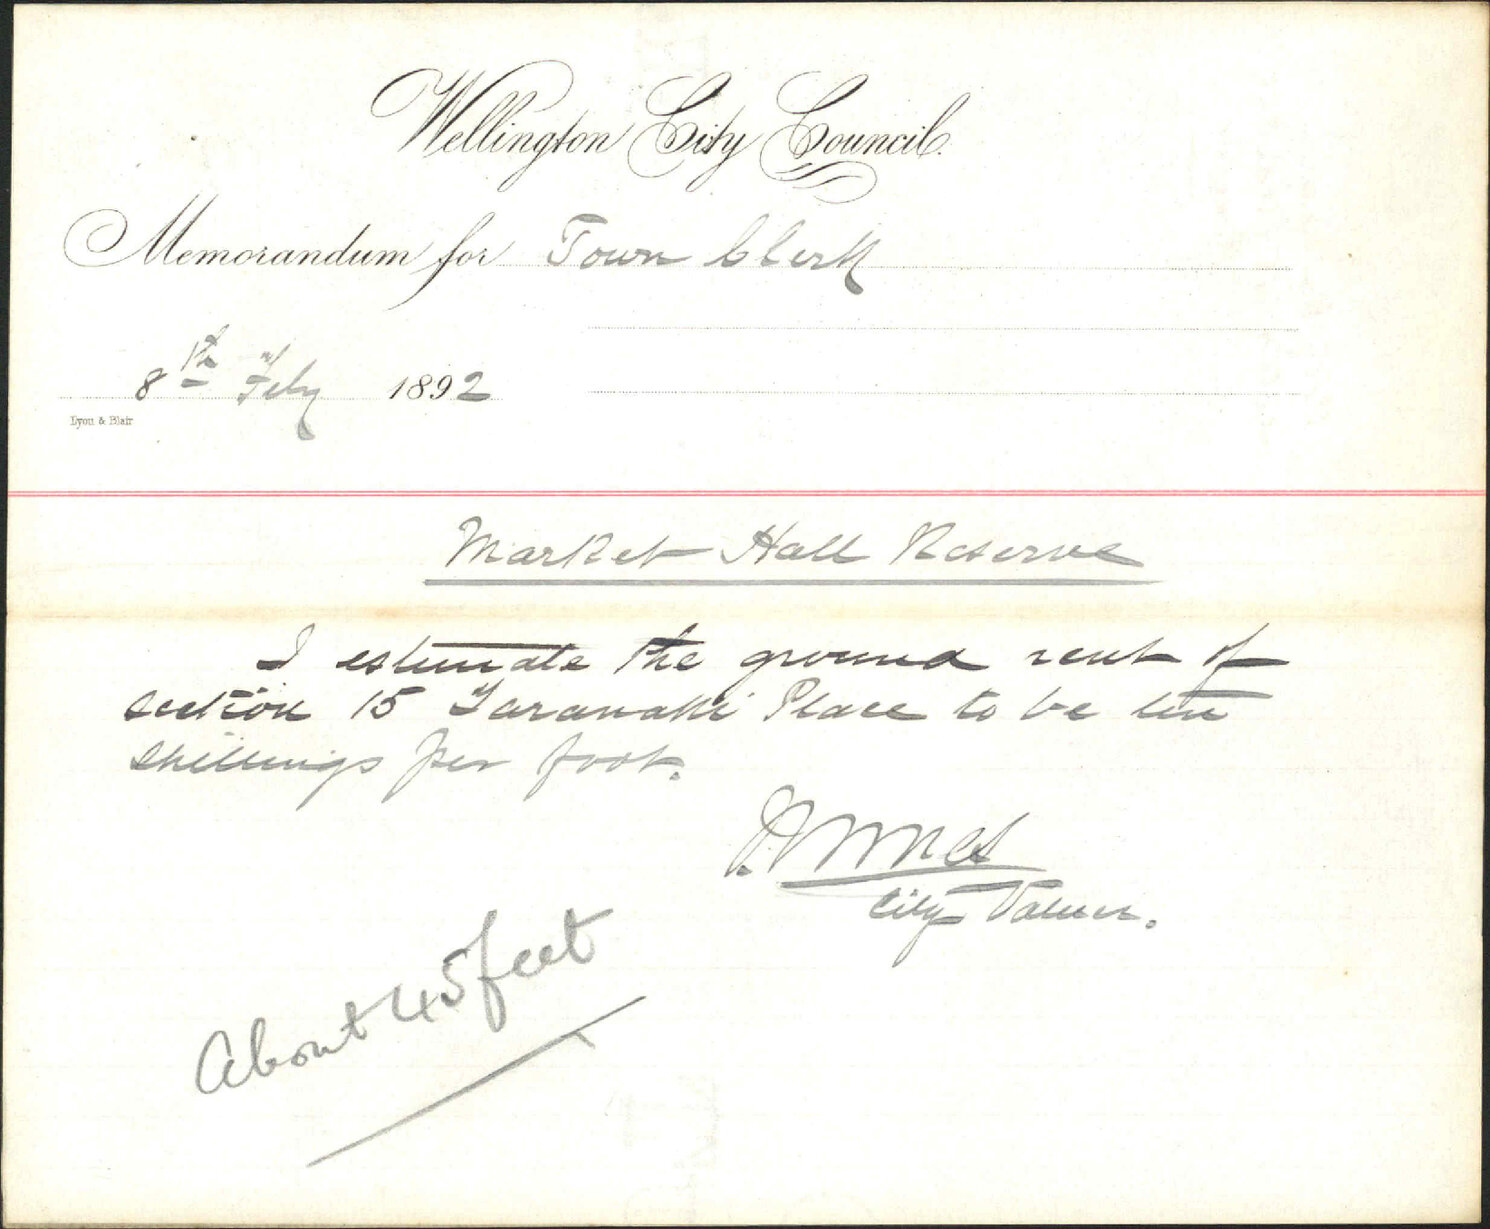 Wellington City Council.
Memorandum for Town Clerk
8th Feby 1892
Lyon & Blair
Market Hall Reserve
I estimate the ground rent of
section 15 Taranaki Place to be ten
shillings per foot.
City Valuer.
About 45 feet